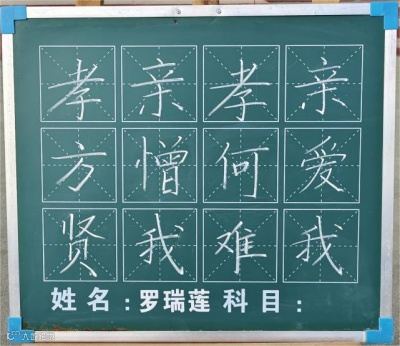 孝亲孝亲
方憎何爱
贤我难我
姓名:罗瑞莲 科目: